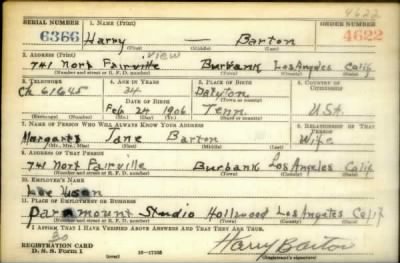 4622
SERIAL NUMBER 1. NAME (Print) ORDER NUMBER
6366 Harry — Barton 4622
(First) (Middle) (Last)
2. ADDRESS (Print) view
741 Nort Fairville Burbank Los Angeles Calif
(Number and street or R. F. D. number) (Town) (County) (State)
3. TELEPHONE 4. AGE IN YEARS 5. PLACE OF BIRTH 6. COUNTRY OF CITIZENSHIP
Ch 61645 34 Dayton
DATE OF BIRTH (Town or county)
Feb 24 1906 Tenn. U.S.A.
(Exchange) (Number) (Mo.) (Day) (Yr.) (State or country)
7. NAME OF PERSON WHO WILL ALWAYS KNOW YOUR ADDRESS 8. RELATIONSHIP OF THAT PERSON
Margaret Jane Barton Wife
(Mr., Mrs., Miss) (First) (Middle) (Last)
9. ADDRESS OF THAT PERSON
741 Nort Fairville Burbank Los Angeles Calif
(Number and street or R. F. D. number) (Town) (County) (State)
10. EMPLOYER'S NAME
Lee
11. PLACE OF EMPLOYMENT OR BUSINESS
Paramount Studio Hollwood Los Angeles Calif
(Number and street or R. F. D. number) (Town) (County) (State)
I AFFIRM THAT I HAVE VERIFIED ABOVE ANSWERS AND THAT THEY ARE TRUE.
REGISTRATION CARD
D. S. S. Form 1 (over) 16—17105 Harry Barton
(Registrant's signature)